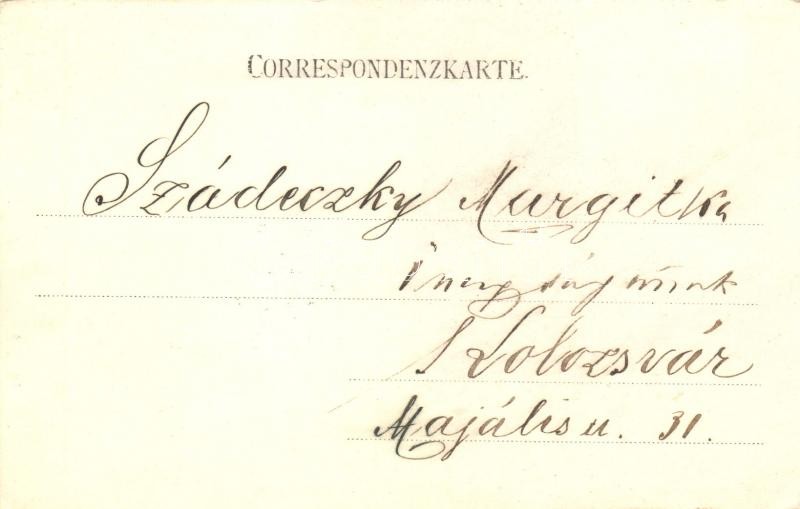 CORRESPONDENZKARTE.
Szádeczky Margitka
Őnagyságának
Kolozsvár
Majális u. 31.